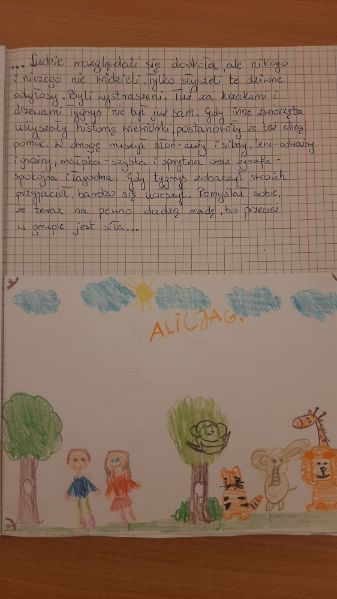 ... Ludzie rozglądali się dookoła, ale nikogo
i niczego nie widzieli. Tylko słyszeli te dziwne
odgłosy. Byli wystraszeni. Tuż za krzakami i
drzewami tygrys nie był już sam. Gdy inne zwierzęta
usłyszały historię wiewiórki, postanowiły, że też chcą
pomóc. W drogę ruszyli słoń-duży i silny, lew-odważny
i groźny, małpka-szybka i sprytna oraz żyrafa-
spokojna i łagodna. Gdy tygrys zobaczył swoich
przyjaciół, bardzo się ucieszył. Pomyślał sobie,
że teraz na pewno dadzą radę, bo przecież
w grupie jest siła...
ALICJA G.